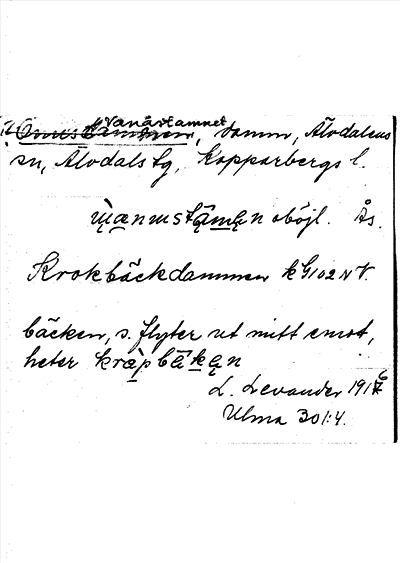 Vanåstamnet
, damm, Älvdalens
sn, Älvdals tg, Kopparbergs l.
oböjl. Ås.
Krokbäckdammen k G102 NV.
bäcken, s. flyter ut mitt emot,
heter kråpbäkęn
L. Levander 1916
Ulma 301:4.